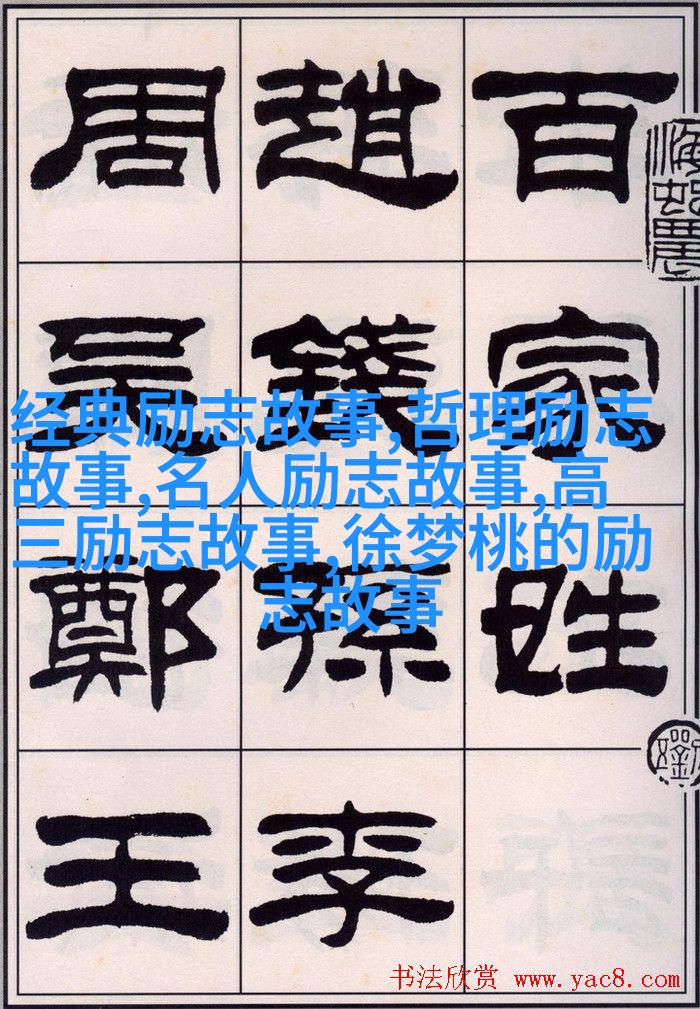 百家姓
趙錢孫李
周吳鄭王
经典励志故事,哲理励志
故事,名人励志故事,高
三励志故事,徐梦桃的励
志故事
书法欣赏 www.yac8.com